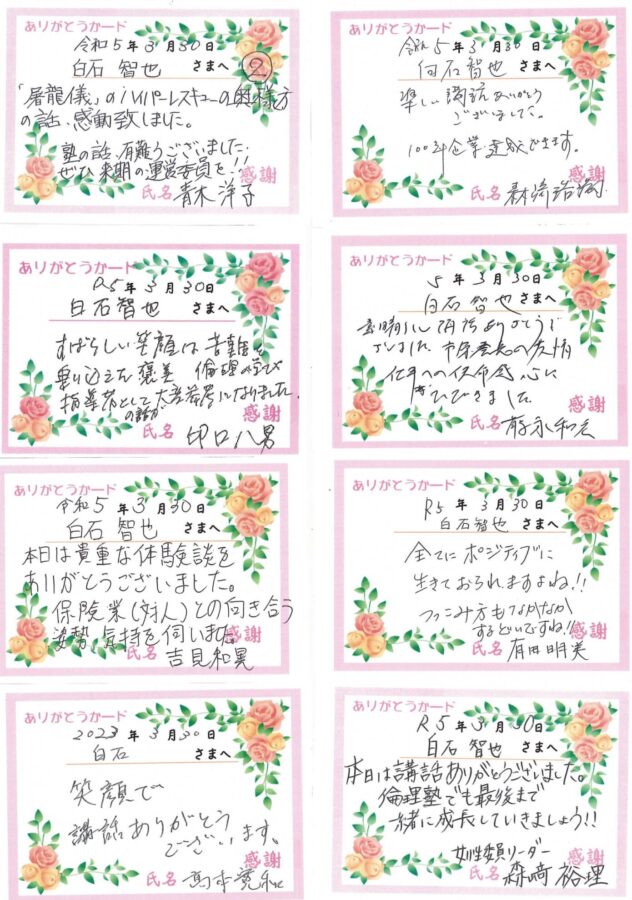 ありがとうカード
令和5年3月30日
白石 智也 さまへ
②
「屠龍儀」のハイパーレスキューの奥様方
の話、感動致しました。
塾の話、有難うございました。
ぜひ来期の運営委員を!!
感謝
氏名 青木 洋子
ありがとうカード
令和5年3月30日
白石智也 さまへ
楽しい講話ありがとう
ございました。
100年企業達成できます。
感謝
氏名
ありがとうカード
R5年3月30日
白石智也 さまへ
すばらしい笑顔は苦難を
乗り込えた褒美 倫理の学び
指導者として大変参考になりました
の話が
感謝
氏名 印口八男
ありがとうカード
5年3月30日
白石智也 さまへ
素晴らしい講話ありがとうご
ざいました
仕事への使命感 心に
ひびきました
感謝
氏名
ありがとうカード
令和5年3月30日
白石智也 さまへ
本日は貴重な体験談を
ありがとうございました。
保険業(対人)との向き合う
姿勢、気持を伺いました。
感謝
氏名 吉見和晃
ありがとうカード
R5年3月30日
白石智也 さまへ
全てにポジティブに
生きておられますよね!!
つっこみ方もなかなか
するどいですね!!
感謝
氏名 有田明実
ありがとうカード
2023年3月30日
白石 さまへ
笑顔で
講話ありがとう
ございます。
感謝
氏名
ありがとうカード
R5年3月30日
白石 智也 さまへ
本日は講話ありがとうございました。
倫理塾でも最後まで
一緒に成長していきましょう!!
女性委員リーダー
感謝
氏名 森崎 裕理